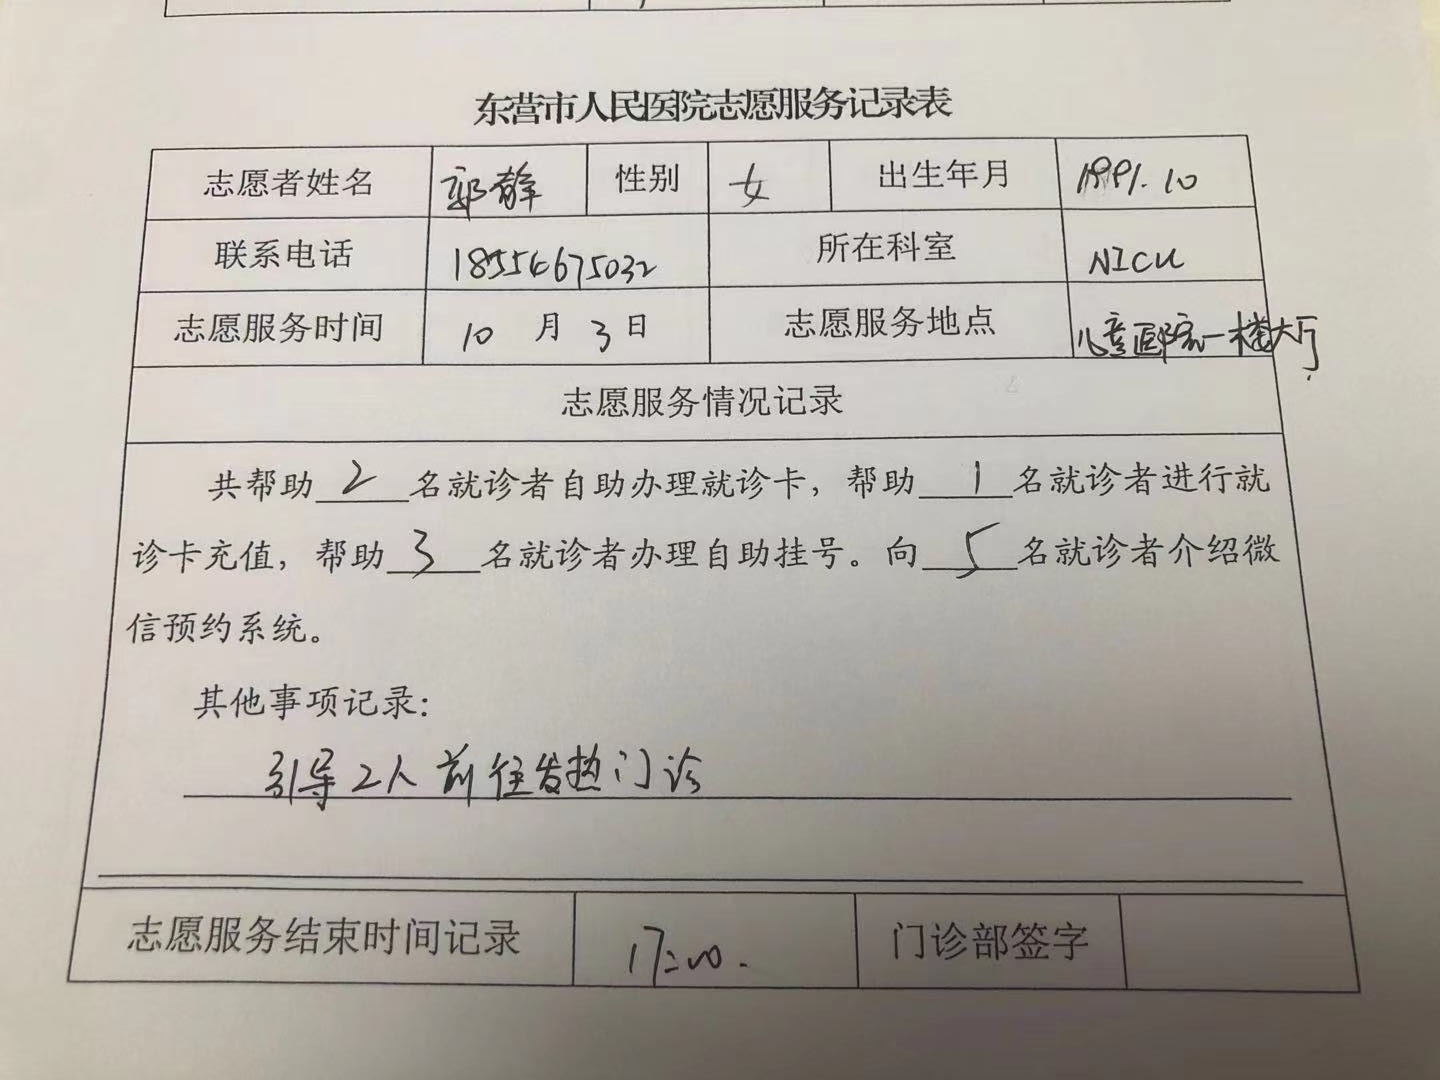 东营市人民医院志愿服务记录表
志愿者姓名 郭静 性别 女 出生年月 1991.10
联系电话 18554675032 所在科室 NICU
志愿服务时间 10 月 3 日 志愿服务地点 儿童医院一楼大厅
志愿服务情况记录
共帮助 2 名就诊者自助办理就诊卡，帮助 1 名就诊者进行就
诊卡充值，帮助 3 名就诊者办理自助挂号。向 5 名就诊者介绍微
信预约系统。
其他事项记录：
引导2人前往发热门诊
志愿服务结束时间记录 17:00. 门诊部签字